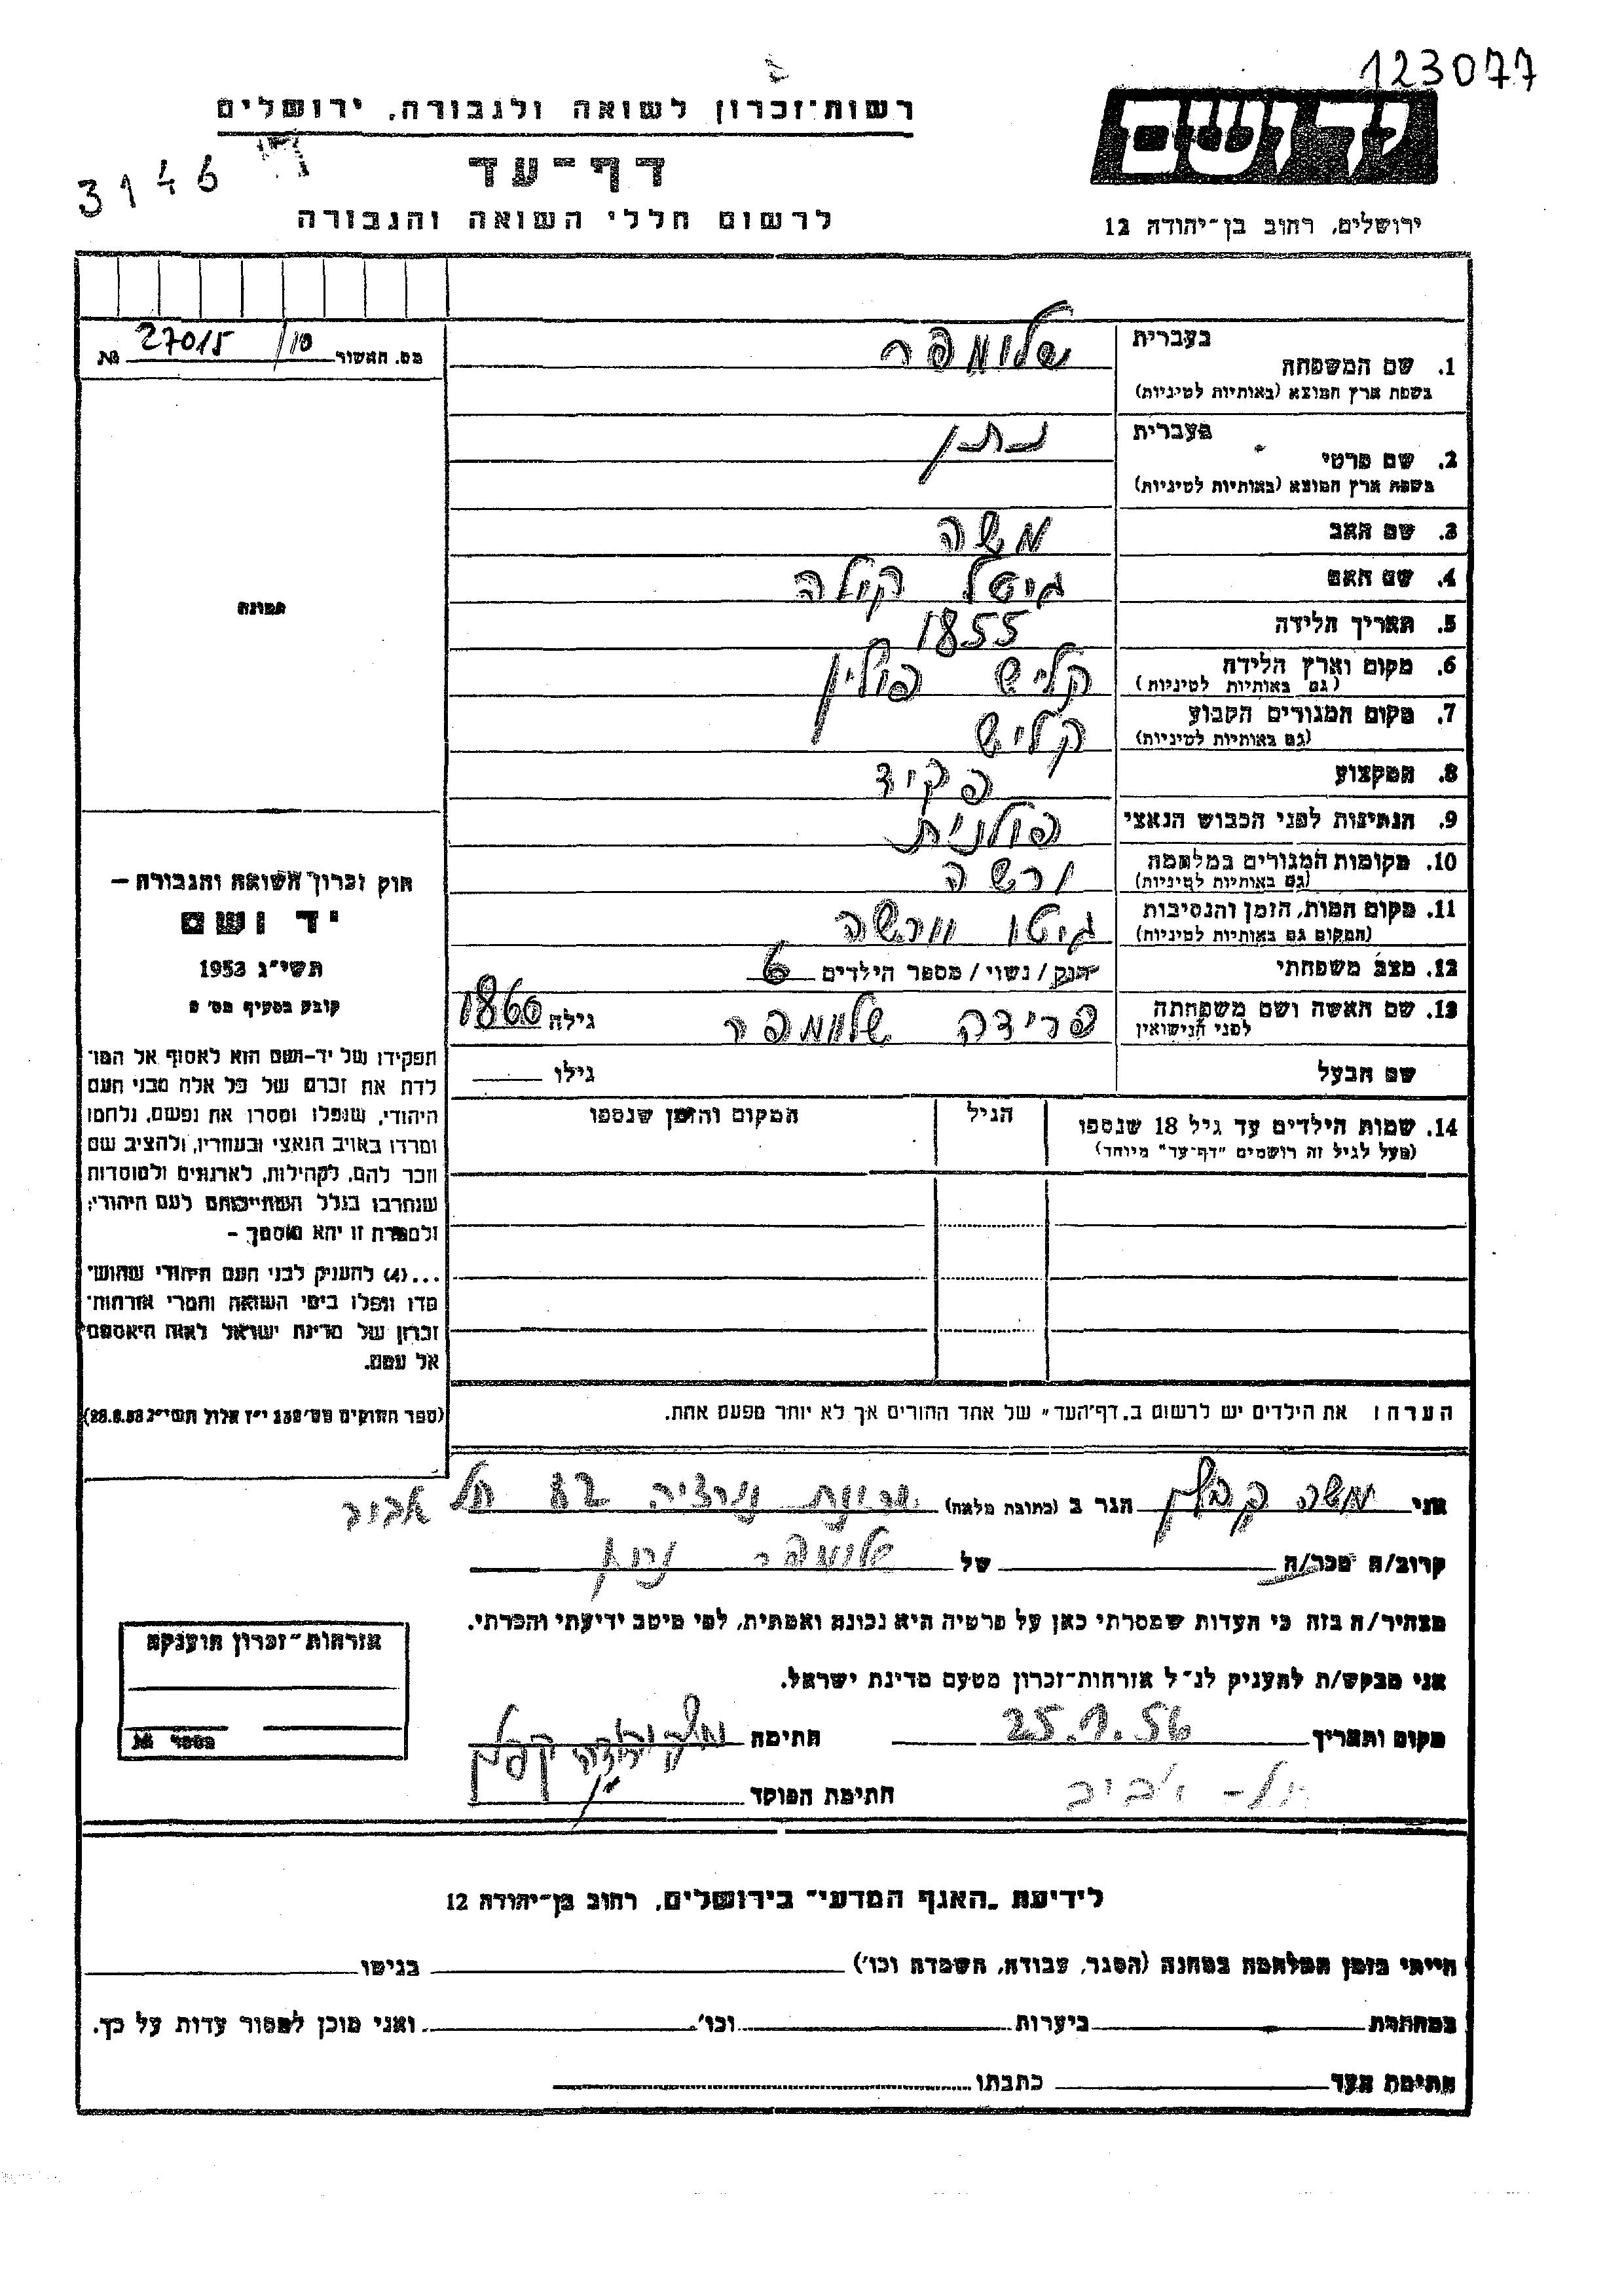 123077
יד ושם
רשות-זכרון לשואה ולגבורה, ירושלים
3146
דף-עד
לרשום חללי השואה והגבורה
ירושלים, רחוב בן-יהודה 12
מס. האשור 27015/10 №
בעברית שלומפר
1. שם המשפחה
בשפת ארץ המוצא (באותיות לטיניות)
בעברית נתן
2. שם פרטי
בשפת ארץ המוצא (באותיות לטיניות)
3. שם האב משה
4. שם האם גיטל קילה
5. תאריך הלידה 1855
6. מקום וארץ הלידה קליש פולין
(גם באותיות לטיניות)
7. מקום המגורים הקבוע קליש
(גם באותיות לטיניות)
8. המקצוע פקיד
9. הנתינות לפני הכבוש הנאצי פולנית
10. מקומות המגורים במלחמה ורשה
(גם באותיות לטיניות)
11. מקום המות, הזמן והנסיבות גיטו וורשה
(המקום גם באותיות לטיניות)
12. מצב משפחתי רווק / נשוי / מספר הילדים 6
13. שם האשה ושם משפחתה פרידה שלומפר גילה 1860
לפני הנישואין
שם הבעל גילו
14. שמות הילדים עד גיל 18 שנספו הגיל המקום והזמן שנספו
(מעל לגיל זה רושמים "דף-עד" מיוחד)
תמונה
חוק זכרון השואה והגבורה –
יד ושם
תשי"ג 1953
קובע בסעיף מס' 2
תפקידו של יד-ושם הוא לאסוף אל המו-
לדת את זכרם של כל אלה מבני העם
היהודי, שנפלו ומסרו את נפשם, נלחמו
ומרדו באויב הנאצי ובעוזריו, ולהציב שם
וזכר להם, לקהילות, לארגונים ולמוסדות
שנחרבו בגלל השתייכותם לעם היהודי;
ולמטרה זו יהא מוסמך –
...(4) להעניק לבני העם היהודי שהוש-
מדו ונפלו בימי השואה והמרי אזרחות-
זכרון של מדינת ישראל לאות היאספם
אל עמם.
(ספר החוקים מס' 132 י"ז אלול תשי"ג 28.8.53)
הערה: את הילדים יש לרשום ב"דף-העד" של אחד ההורים אך לא יותר מפעם אחת.
אני משה קפלן הגר ב (כתובת מלאה) שכונת 82 תל אביב
קרוב/ה מכר/ה של שלומפר נתן
מצהיר/ה בזה כי העדות שמסרתי כאן על פרטיה היא נכונה ואמתית, לפי מיטב ידיעתי והכרתי.
אני מבקש/ת להעניק לנ"ל אזרחות-זכרון מטעם מדינת ישראל.
מקום ותאריך 25.1.56 חתימה משה יהודה קפלן
תל-אביב חתימת הפוקד
אזרחות-זכרון הוענקה
מספר №
לידיעת "האגף המדעי" בירושלים, רחוב בן-יהודה 12
הייתי בזמן המלחמה במחנה (הסגר, עבודה, השמדה וכו') בגיטו
במחתרת ביערות וכו' ואני מוכן למסור עדות על כך.
חתימת העד כתבתו